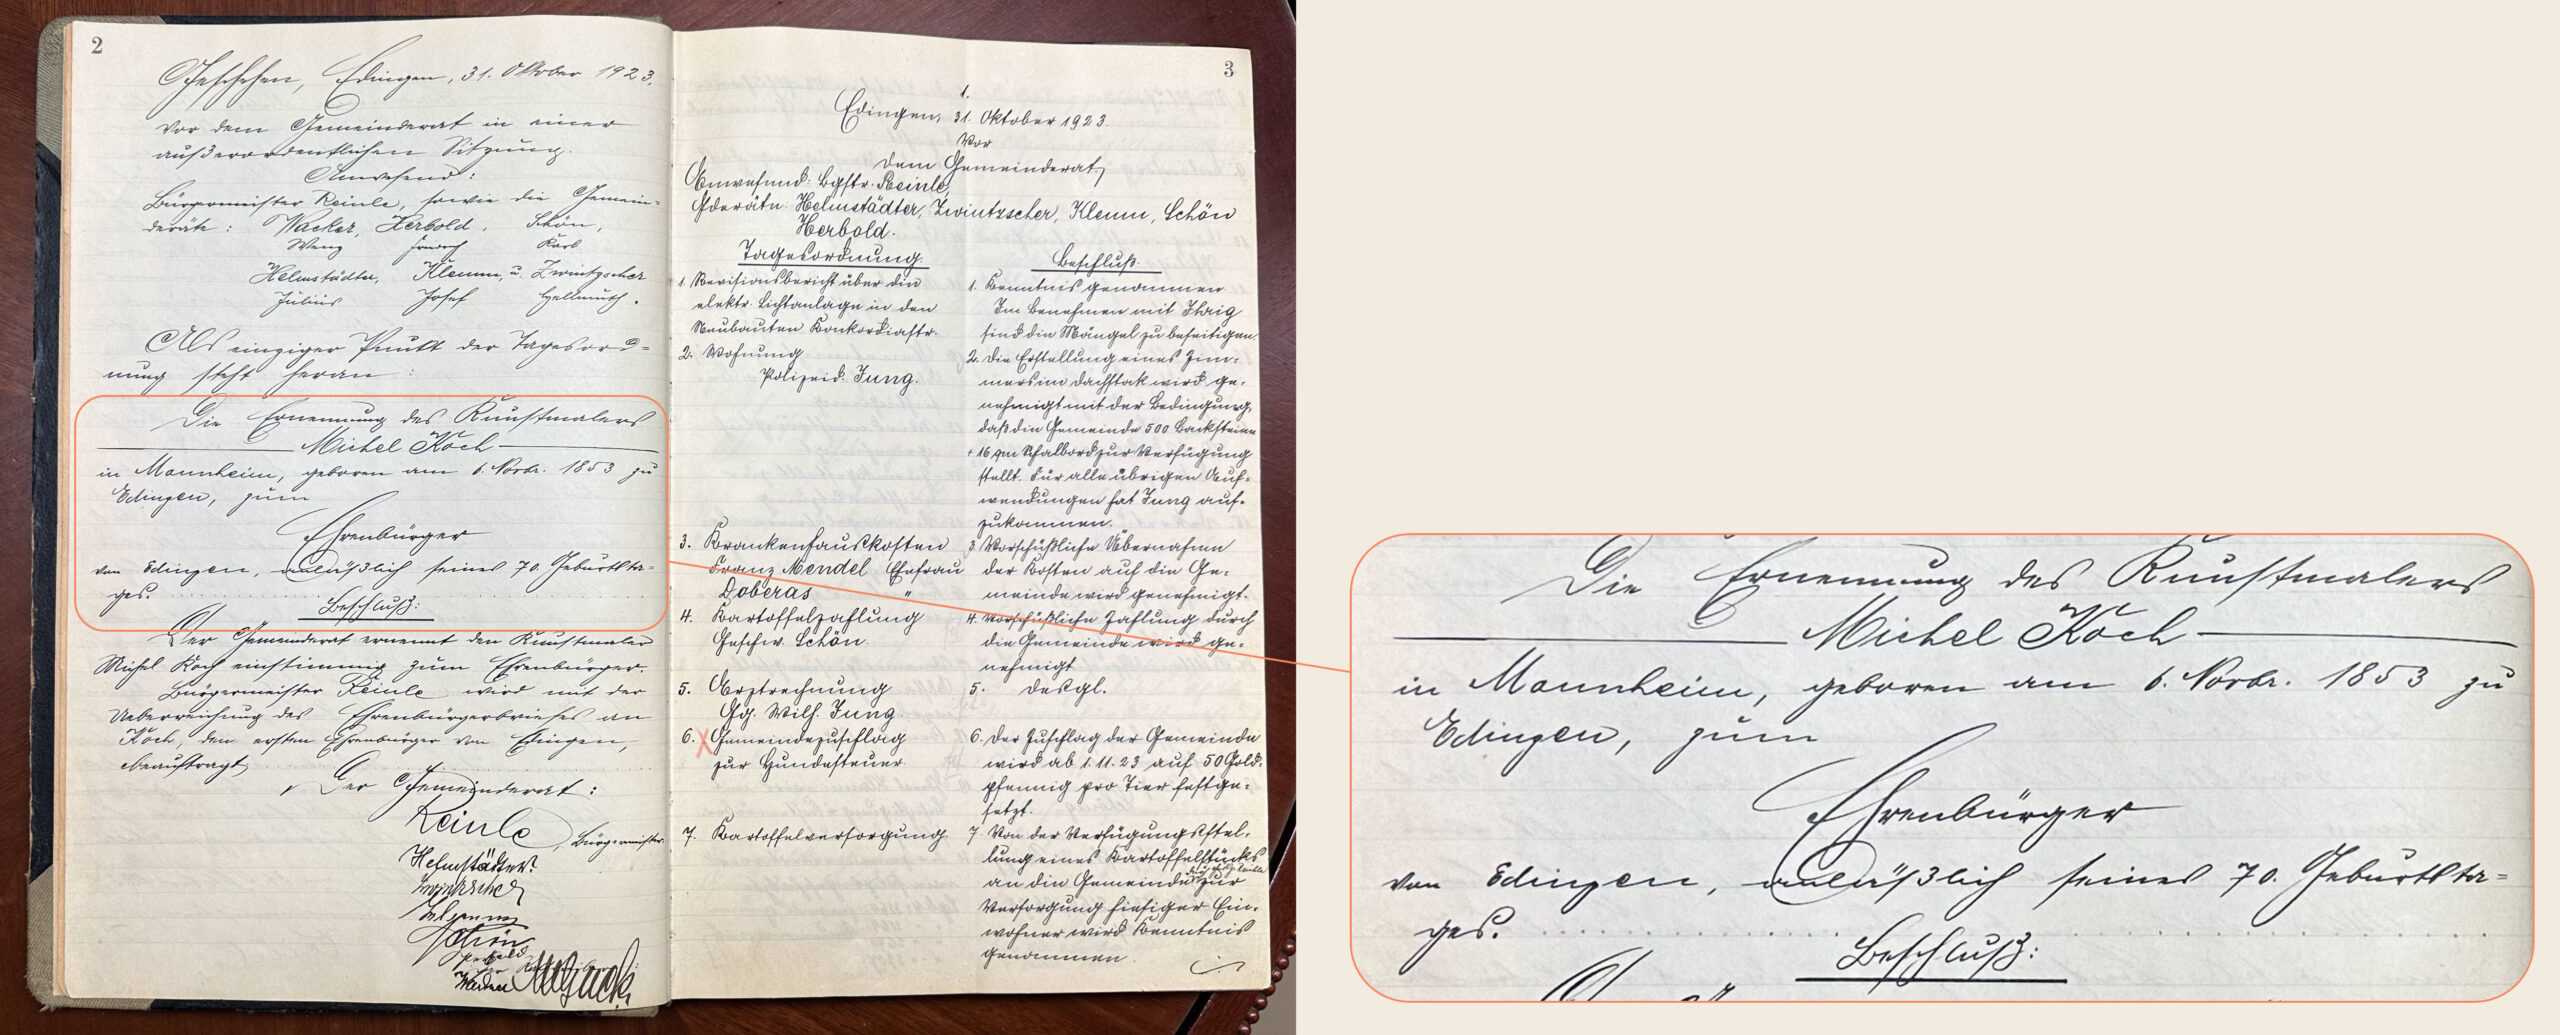 2
Geschehen, Edingen, 31. Oktober 1923.
Vor dem Gemeinderat in einer
außerordentlichen Sitzung.
Anwesend:
Bürgermeister Reinle, sowie die Gemein-
deräte: Wacker, Herbold, Schön,
Wenz Friedrich Karl
Helmstädter, Klemm, u. Zwintzscher
Julius Josef Hellmuth.
Als einziger Punkt der Tagesord-
nung steht heran:
Die Ernennung des Kunstmalers
Michel Koch
in Mannheim, geboren am 6. Novbr. 1853 zu
Edingen, zum
Ehrenbürger
von Edingen, anläßlich seines 70. Geburtsta-
ges.
Beschluß:
Der Gemeinderat ernennt den Kunstmaler
Michel Koch einstimmig zum Ehrenbürger.
Bürgermeister Reinle wird mit der
Ueberreichung des Ehrenbürgerbriefes an
Koch, den ersten Ehrenbürger von Edingen,
beauftragt.
Der Gemeinderat:
Reinle, Bürgermeister
Helmstädter.
Zwintzscher
Klemm
Schön
Herbold
3
1.
Edingen, 31. Oktober 1923.
Vor
dem Gemeinderat,
Anwesend: Bgstr. Reinle,
Gderäte: Helmstädter, Zwintzscher, Klemm, Schön
Herbold.
Tagesordnung.
1. Revisionsbericht über die
elektr. Lichtanlage in den
Neubauten Konkordiastr.
2. Wohnung
Polizeid. Jung.
3. Krankenhauskosten
Franz Mendel Ehefrau
Doberas "
4. Kartoffelzahlung
Geschw. Schön.
5. Arztrechnung
Gg. Wilh. Jung.
6. Gemeindezuschlag
zur Hundesteuer
7. Kartoffelversorgung.
Beschluß.
1. Kenntnis genommen
Im Benehmen mit Ihrig
sind die Mängel zu beseitigen.
2. Die Erstellung eines Zim-
mers im Dachstok wird ge-
nehmigt mit der Bedingung,
daß die Gemeinde 500 Backsteine
+ 16 qm Schalbord zur Verfügung
stellt. Für alle übrigen Auf-
wendungen hat Jung auf-
zukommen.
3. Vorschüßliche Übernahme
der Kosten auf die Ge-
meinde wird genehmigt.
4. Vorschüßliche Zahlung durch
die Gemeinde wird ge-
nehmigt
5. desgl.
6. Der Zuschlag der Gemeinde
wird ab 1.11.23 auf 50 Gold-
pfennig pro Tier festge-
setzt.
7. Von der Verfügungsstel-
lung eines Kartoffelstücks
an die Gemeinde zur
Versorgung hiesiger Ein-
wohner wird Kenntnis
genommen.
Die Ernennung des Kunstmalers
Michel Koch
in Mannheim, geboren am 6. Novbr. 1853 zu
Edingen, zum
Ehrenbürger
von Edingen, anläßlich seines 70. Geburtsta-
ges.
Beschluß: